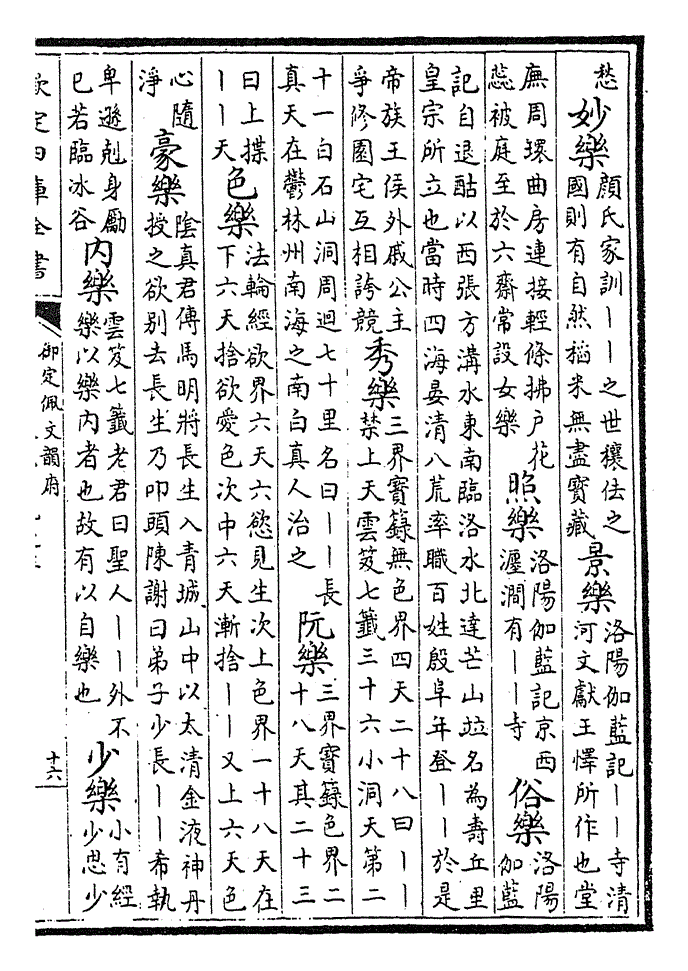 愁妙樂顔氏家訓丨丨之世穰佉之國則有自然稻米無盡寶藏景樂洛陽伽藍記丨丨寺清河文獻王懌所作也堂
廡周環曲房連接輕條拂户花蕊被庭至於六齋常設女樂照樂洛陽伽藍記京西瀍澗有丨丨寺俗樂洛陽伽藍
記自退酤以西張方溝水東南臨洛水北達芒山竝名為壽丘里皇宗所立也當時四海晏清八荒率職百姓殷阜年登丨丨於是
帝族王侯外戚公主爭修園宅互相誇競秀樂三界寶籙無色界四天二十八曰丨丨禁上天雲笈七籤三十六小洞天第二
十一白石山洞周迴七十里名曰丨丨長真天在鬱林州南海之南白真人治之阮樂三界寶籙色界二十八天其二十三
曰上揲丨丨天色樂法輪經欲界六天六慾見生次上色界一十八天在下六天捨欲愛色次中六天漸捨丨丨又上六天色
心隨淨豪樂陰真君傳馬明將長生入青城山中以太清金液神丹授之欲别去長生乃叩頭陳謝曰弟子少長丨丨希執
卑遜剋身勵已若臨冰谷內樂雲笈七籤老君曰聖人丨丨外不樂以樂內者也故有以自樂也少樂小有經少思少
欽定四庫全書
御定佩文韻府
十六